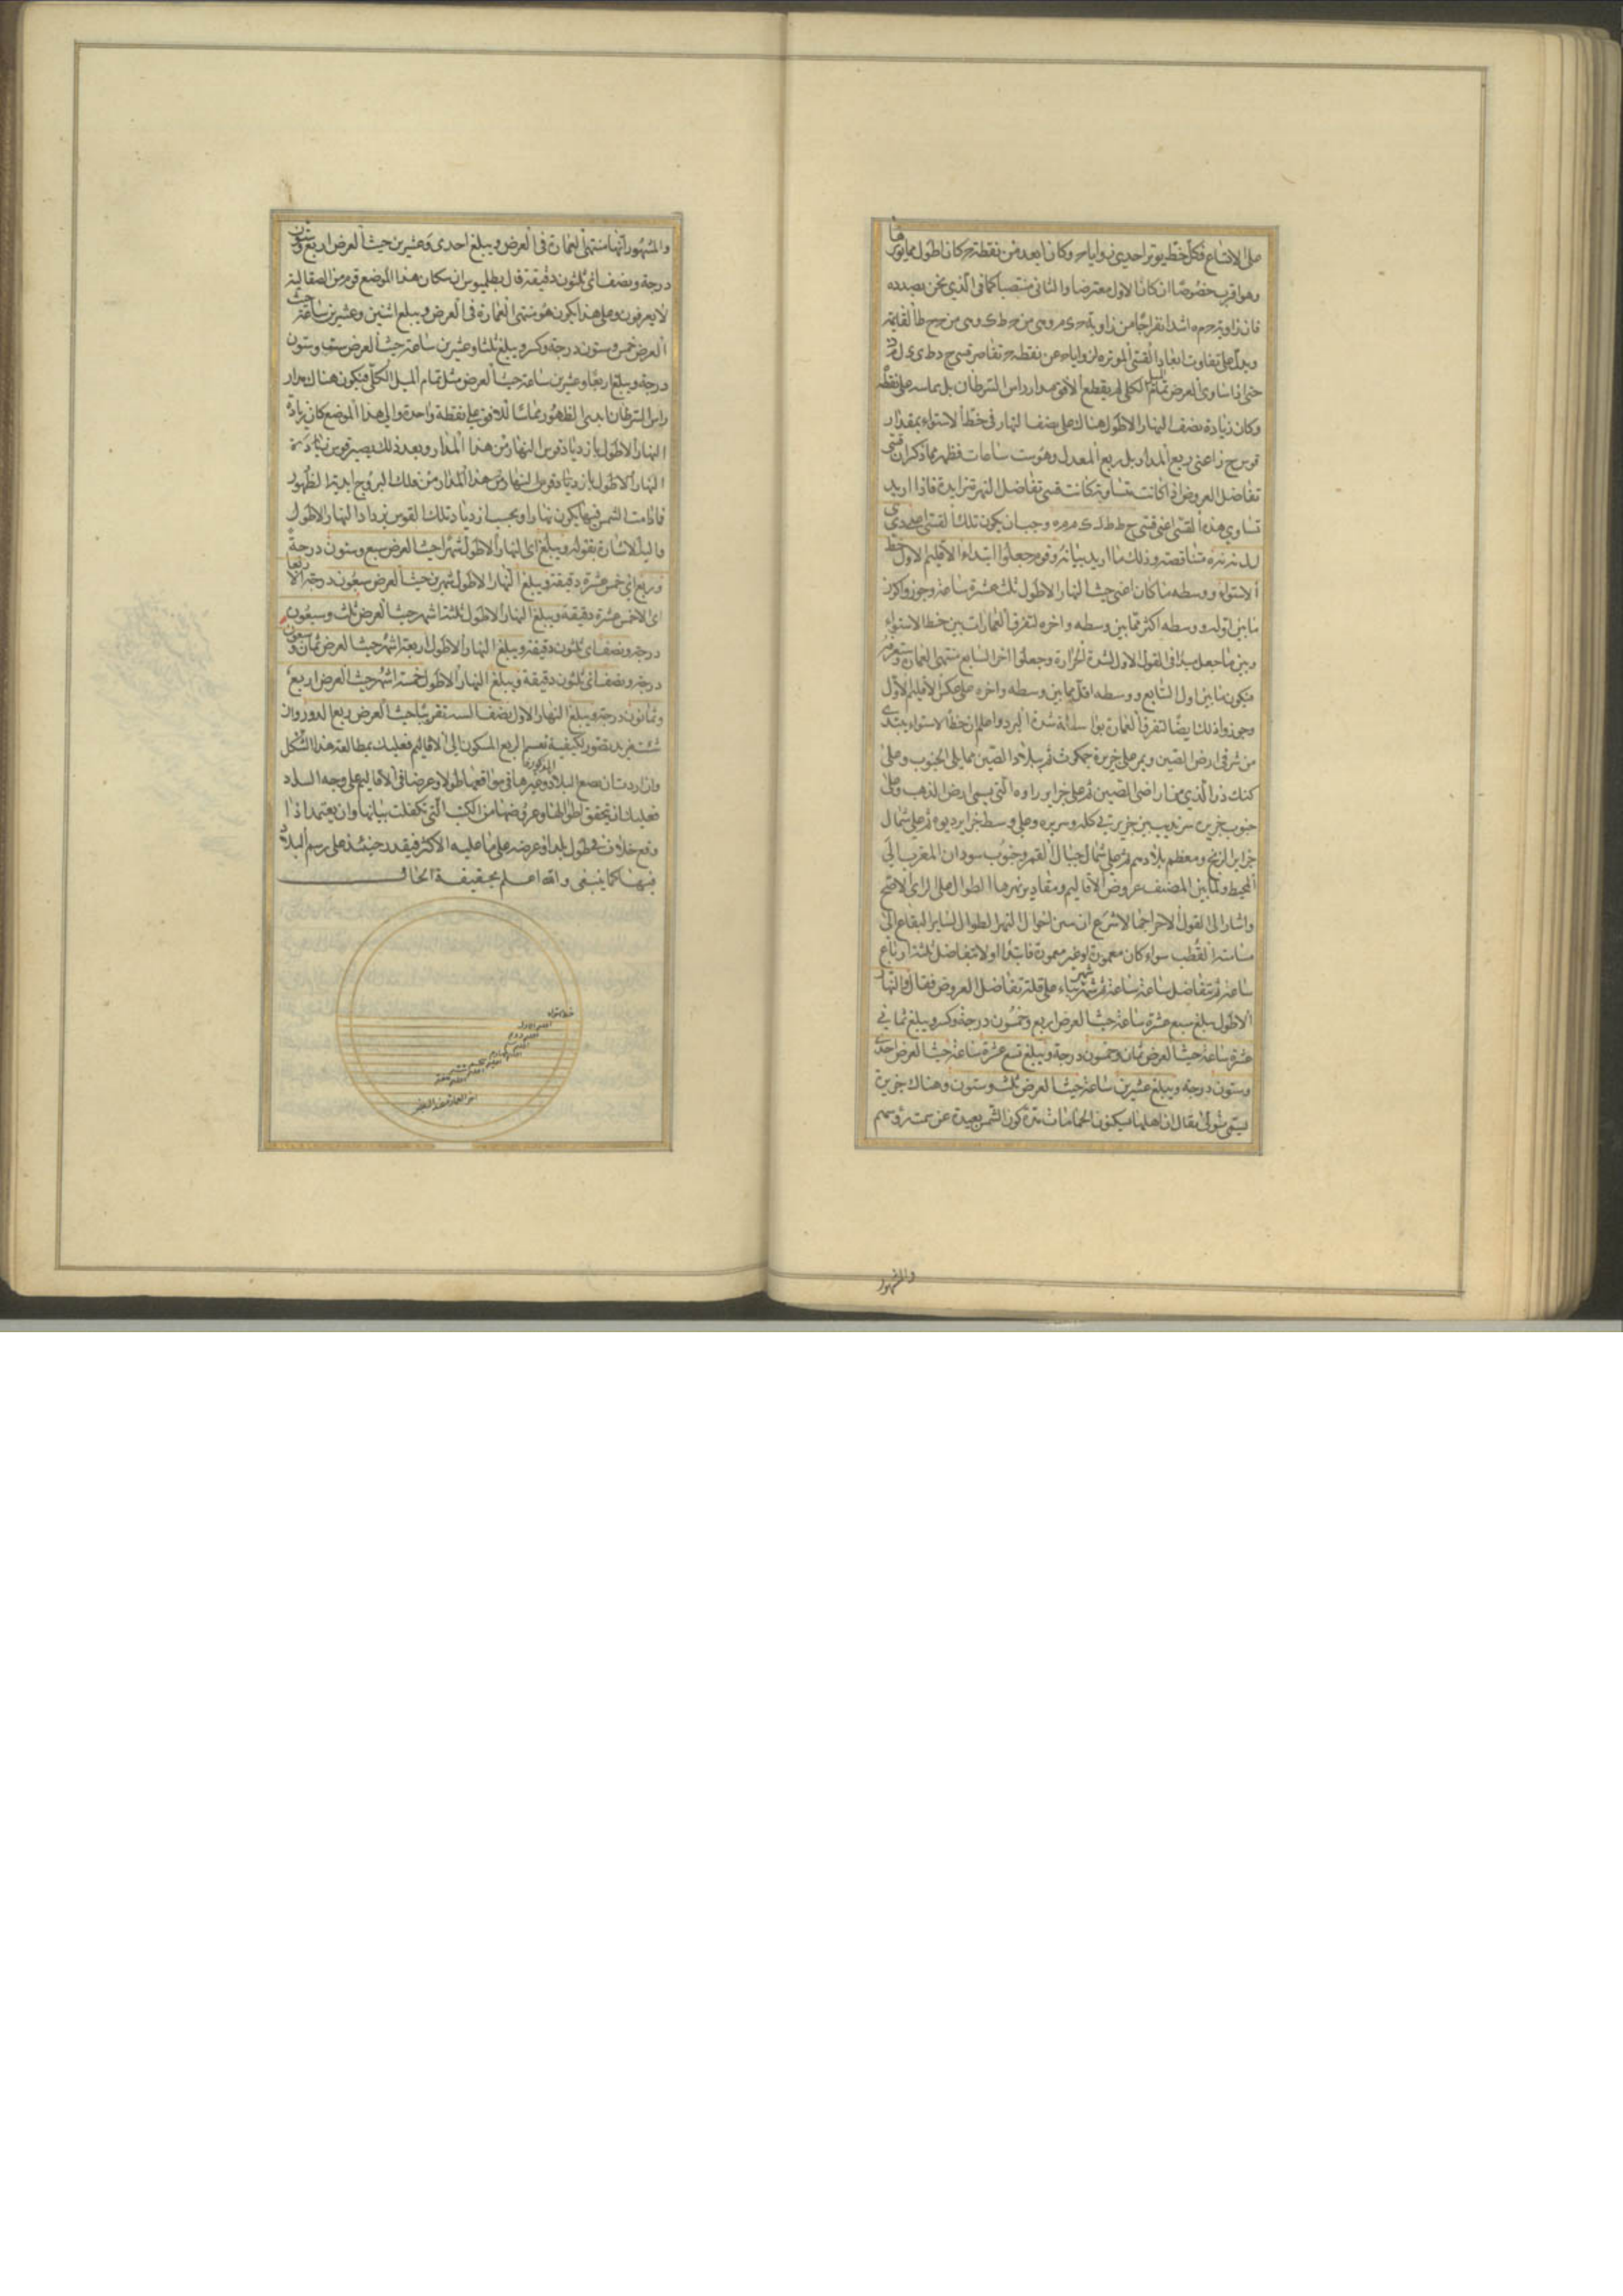 على الاتساع فكل خط يوتر احدى زوايا ح وكان ابعد من نقطة ح كان اطول مما يوترها
وهو اقرب خصوصا ان كان الاول معترضا والثانى منتصبا كما فى الذي نحن بصدده
فان زاوية ح م ه اشد انفراجا من زاوية ح ى م وهى من ح ط ى وهى من ح ح ط القايمة
ويدل على تفاوت ابعاد القسى الموترة لزوايا ح عن نقطة ح تقاصر قسى
حتى اذا ساوى العرض تمام الميل الكلى لم يقطع الافق مدار راس السرطان بل يماسه على نقطة
وكان زيادة نصف النهار الاطول هناك على نصف النهار فى خط الاستواء بمقدار
قوس ح ز اعنى ربع المدار بل ربع المعدل وهو ست ساعات فظهر مما ذكر ان قسى
تفاضل العروض اذا كانت متساوية كانت قسى تفاضل النهر متزايدة فاذا اريد
تساوي هذه القسى اعنى قسى وجب ان يكون تلك القسى اعنى
متناقصة وذلك ما اريد بيانه وقوم جعلوا ابتداء الاقليم الاول خط
الاستواء ووسطه ما كان اعنى حيث النهار الاطول ثلث عشرة ساعة وجوزوا كون
ما بين اوله ووسطه اكثر مما بين وسطه واخره لتفرق العمارات بين خط الاستواء
وبين ما جعل مبدأ فى القول الاول لشدة الحرارة وجعلوا اخر السابع منتهى العمارة
فيكون ما بين اول السابع ووسطه اقل مما بين وسطه واخره على عكس الاقليم الاول
وجوزوا ذلك ايضا لتفرق العمارة بواسطة شدة البرد واعلم ان خط الاستواء يبتدى
من شرقى ارض الصين ويمر على جزيرة جمكوت ثم ببلاد الصين مما يلى الجنوب وعلى
كنك دز الذي من اراضى الصين ثم على جزاير زاوه التى يسمى ارض الذهب وعلى
جنوب جزيرة سرنديب بين جزيرتي كله وسريره وعلى وسط جزاير ديوه ثم على شمال
جزاير الزنج ومعظم بلادهم ثم على شمال جبال القمر وجنوب سودان المغرب الى
المحيط ولما بين المصنف عروض الاقاليم ومقادير نهرها الطوال على الراى الاصح
واشار الى القول الاخر اجمالا شرع ان يبين احوال النهر الطوال لساير البقاع الى
مسامتة القطب سواء كان معمورة او غير معمورة فابتدا اولا بتفاضل ثلثة ارباع
ساعة ثم بتفاضل ساعة ساعة ثم شهر شهر بناء على قلة تفاضل العروض فقال والنهار
الاطول يبلغ سبع عشرة ساعة حيث العرض اربع وخمسون درجة وكسر ويبلغ ثمانى
عشرة ساعة حيث العرض ثمان وخمسون درجة ويبلغ تسع عشرة ساعة حيث العرض احدى
وستون درجة ويبلغ عشرين ساعة حيث العرض ثلث وستون وهناك جزيرة
يسمى ثولى يقال ان اهلها يسكنون الحمامات مدة كون الشمس بعيدة عن سمت رؤسهم
والمشهور
والمشهور انها منتهى العمارة فى العرض ويبلغ احدى وعشرين حيث العرض اربع وستون
درجة ونصف اى ثلثون دقيقة قال بطلميوس ان سكان هذا الموضع قوم من الصقالبة
لا يعرفون وعلى هذا يكون هو منتهى العمارة فى العرض ويبلغ اثنين وعشرين ساعة حيث
العرض خمس وستون درجة وكسر ويبلغ ثلثا وعشرين ساعة حيث العرض ست وستون
درجة ويبلغ اربعا وعشرين ساعة حيث العرض مثل تمام الميل الكلى فيكون هناك مدار
راس السرطان ابدى الظهور مماسا للافق على نقطة واحدة والى هذا الموضع كان زيادة
النهار الاطول بازدياد قوس النهار من هذا المدار وبعد ذلك يصير قوس زيادة
النهار الاطول بازدياد قوس النهار من هذا المدار من فلك البروج ابدية الظهور
فما دامت الشمس فيها يكون نهارا وبحسب ازدياد تلك القوس يزداد النهار الاطول
واليه الاشارة بقوله ويبلغ اى النهار الاطول شهرا حيث العرض سبع وستون درجة
وربع اي خمس عشرة دقيقة ويبلغ النهار الاطول شهرين حيث العرض سبعون درجة الا ربعا
اى الا خمس عشرة دقيقة ويبلغ النهار الاطول ثلثة اشهر حيث العرض ثلث وسبعون
درجة ونصف اى ثلثون دقيقة ويبلغ النهار الاطول اربعة اشهر حيث العرض ثمان وسبعون
درجة ونصف اى ثلثون دقيقة ويبلغ النهار الاطول خمسة اشهر حيث العرض اربع
وثمانون درجة ويبلغ النهار الاول نصف السنة تقريبا حيث العرض ربع الدور وان
شئت مزيد تصور لكيفية تقسيم الربع المسكون الى الاقاليم فعليك بمطالعة هذا الشكل
وان اردت ان تضع البلاد وغيرها فى مواقعها طولا وعرضا فى الاقاليم المذكورة على وجه السداد
فعليك ان تحقق اطوالها وعروضها من الكتب التى تكفلت ببيانها وان يعتمد اذا
وقع خلاف فى طول بلد او عرضه على ما عليه الاكثر فيقدر حينئذ على رسم البلاد
فيها كما ينبغى والله اعلم بحقيقة الحال
خط استواء